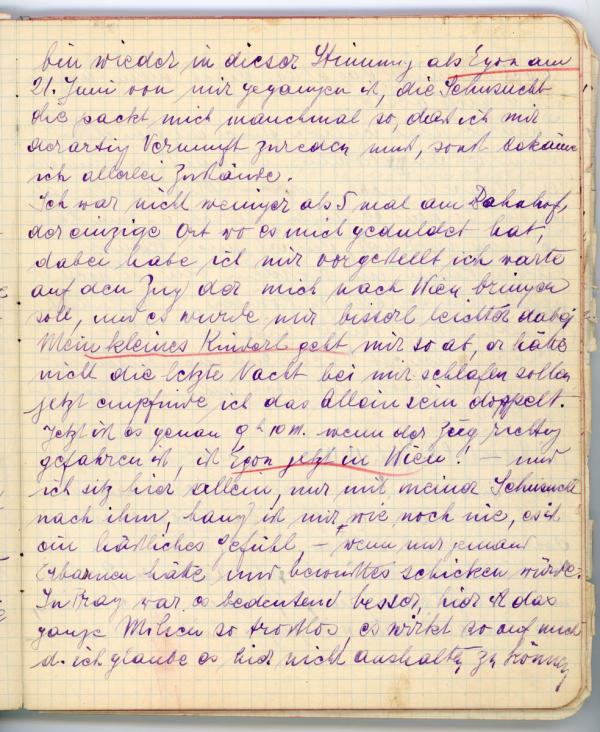 bin wieder in dieser Stimmung als Egon am
21. Juni von mir gegangen ist, die Sehnsucht
die packt mich manchmal so, dass ich mir
derartig Vernunft zureden muss, sonst bekäme
ich allerlei Zustände.
Ich war nicht weniger als 5 mal am Bahnhof,
der einzige Ort wo es mich geduldet hat,
dabei habe ich mir vorgestellt ich warte
auf den Zug der mich nach Wien bringen
soll, und es wurde mir bisserl leichter dabei
Mein kleines Kinderl geht mir so ab, er hätte
nicht die letzte Nacht bei mir schlafen sollen
jetzt empfinde ich das Alleinsein doppelt. -
Jetzt ist es genau 9h 10 m. wenn der Zug richtig
gefahren ist, ist Egon jetzt in Wien! - und
ich sitz hier allein, nur mit meiner Sehnsucht
nach ihm, bang ist mir wie noch nie, es ist
ein hässliches Gefühl, - wenn nur jemand
Erbarmen hätte und schicken würde.
In Prag war es bedeutend besser, hier ist das
ganze Milieu so trostlos, es wirkt so auf mich
d. ich glaube es hier nicht aushalten zu können